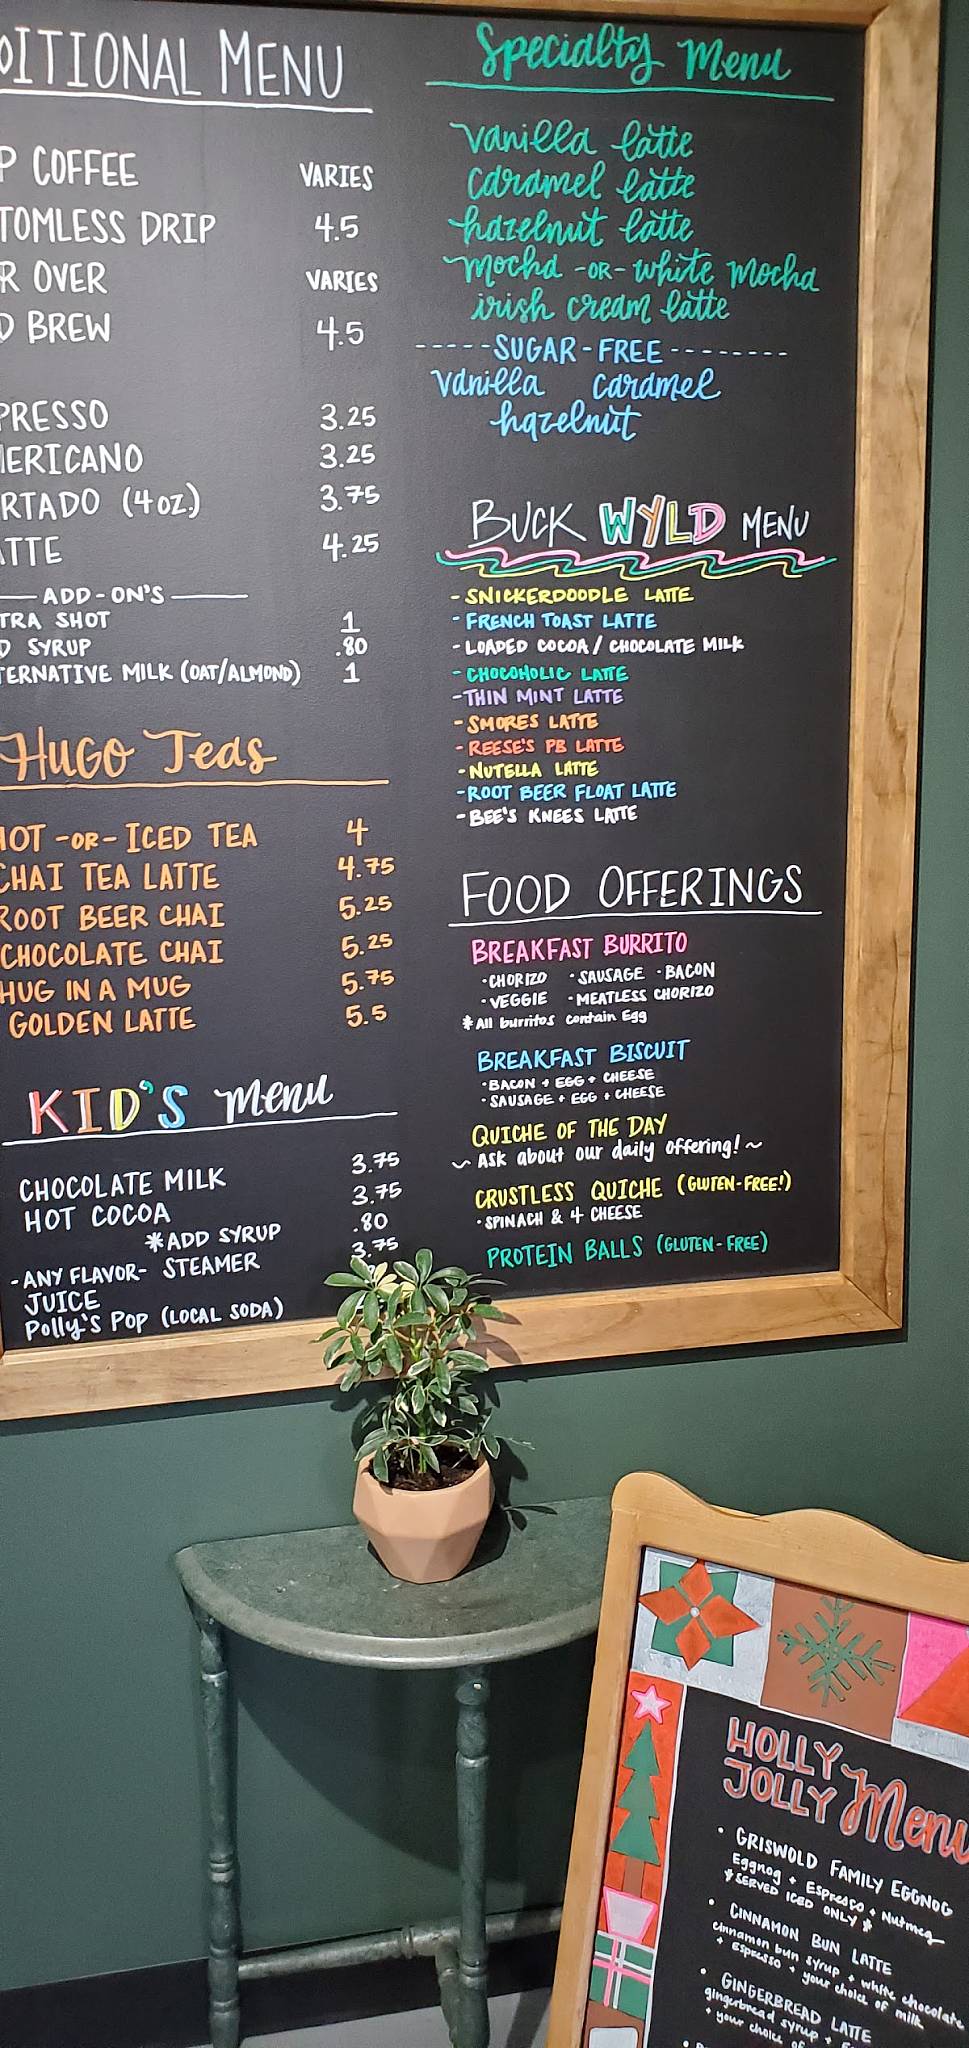 DITIONAL MENU
P COFFEE VARIES
TOMLESS DRIP 4.5
R OVER VARIES
D BREW 4.5
PRESSO 3.25
MERICANO 3.25
RTADO (4oz.) 3.75
ATTE 4.25
ADD-ON'S
TRA SHOT 1
D SYRUP .80
TERNATIVE MILK (OAT/ALMOND) 1
HUGO Teas
HOT -OR- ICED TEA 4
CHAI TEA LATTE 4.75
ROOT BEER CHAI 5.25
CHOCOLATE CHAI 5.25
HUG IN A MUG 5.75
GOLDEN LATTE 5.5
KID'S Menu
CHOCOLATE MILK 3.75
HOT COCOA 3.75
*ADD SYRUP .80
-ANY FLAVOR- STEAMER 3.75
JUICE
Polly's Pop (LOCAL SODA)
Specialty Menu
vanilla latte
caramel latte
hazelnut latte
mocha -OR- white mocha
irish cream latte
-----SUGAR-FREE--------
vanilla caramel
hazelnut
BUCK WYLD MENU
- SNICKERDOODLE LATTE
- FRENCH TOAST LATTE
- LOADED COCOA / CHOCOLATE MILK
- CHOCOHOLIC LATTE
- THIN MINT LATTE
- SMORES LATTE
- REESE'S PB LATTE
- NUTELLA LATTE
- ROOT BEER FLOAT LATTE
- BEE'S KNEES LATTE
FOOD OFFERINGS
BREAKFAST BURRITO
· CHORIZO · SAUSAGE · BACON
· VEGGIE · MEATLESS CHORIZO
*All burritos contain Egg
BREAKFAST BISCUIT
· BACON + EGG + CHEESE
· SAUSAGE + EGG + CHEESE
QUICHE OF THE DAY
~ Ask about our daily offering! ~
CRUSTLESS QUICHE (GLUTEN-FREE!)
· SPINACH & 4 CHEESE
PROTEIN BALLS (GLUTEN-FREE)
HOLLY
JOLLY Menu
· GRISWOLD FAMILY EGGNOG
Eggnog + Espresso + Nutmeg
*SERVED ICED ONLY*
· CINNAMON BUN LATTE
cinnamon bun syrup + white chocolate
+ Espresso + your choice of milk
· GINGERBREAD LATTE
gingerbread syrup +
+ your choice of